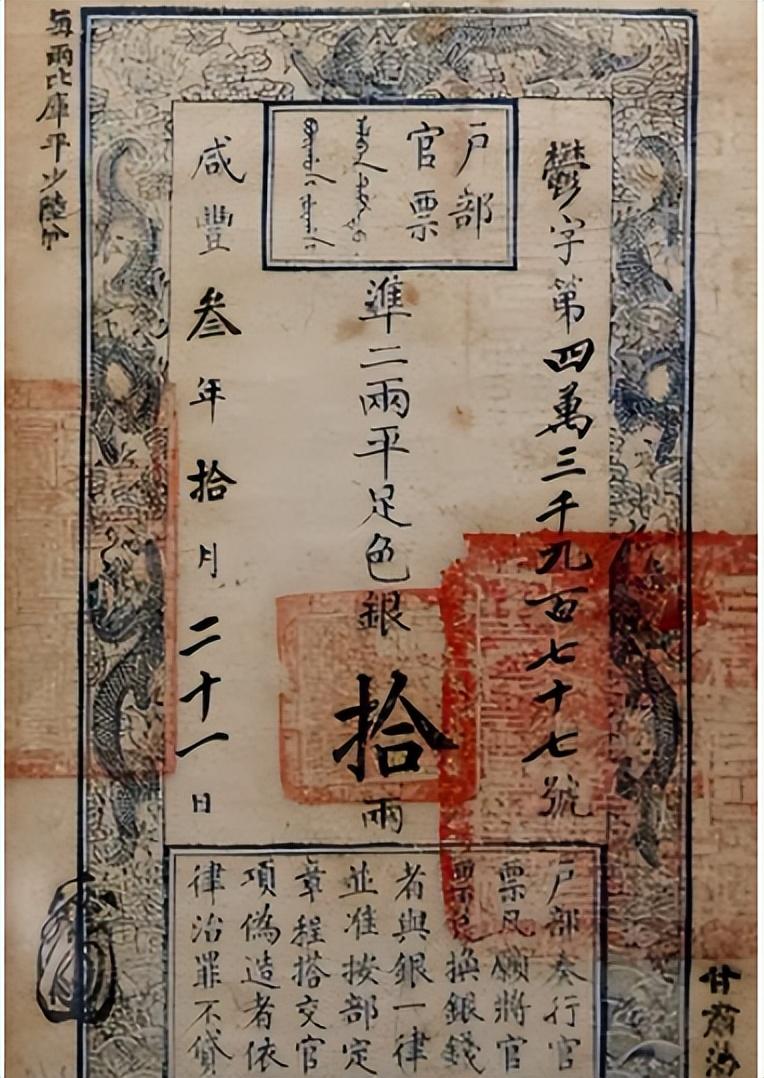 戶部
官票
鬱字第四萬三千九百七十七號
準二兩平足色銀拾兩
咸豐叁年拾月二十一日
每兩比庫平少陸分
戶部奏行官
票凡願將官
票兌換銀錢
者與銀一律
並准按部定
章程搭交官
項偽造者依
律治罪不貸
甘肅